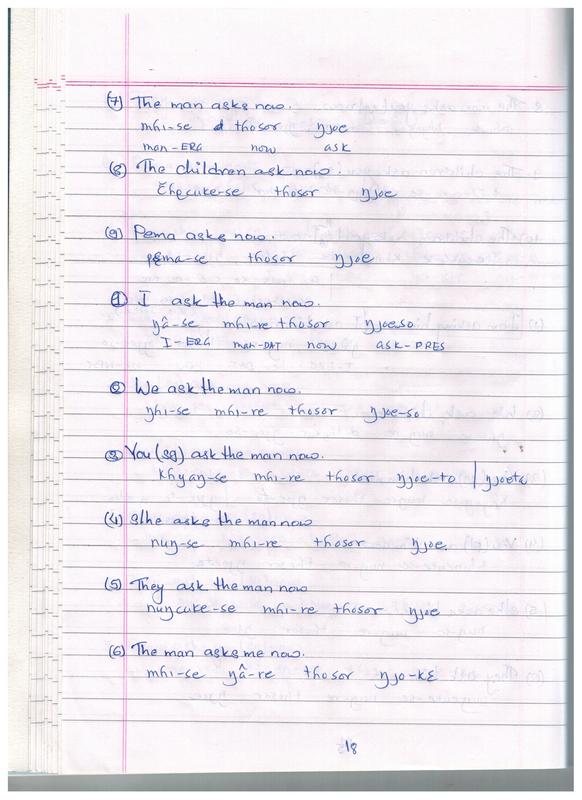 (7) The man asks now.
mhi-se thosor ŋjoe
man-ERG now ask
(8) The children ask now.
thosor ŋjoe
(9) Pema asks now.
pema-se thosor ŋjoe
(1) I ask the man now.
ŋâ-se mhi-re thosor ŋjoeso
I-ERG man-DAT now ask-PRES
(2) We ask the man now.
ŋhi-se mhi-re thosor ŋjoe-so
(3) You (sg) ask the man now.
khyaŋ-se mhi-re thosor ŋjoe-to | ŋjoeto
(4) S/he asks the man now
nuŋ-se mhi-re thosor ŋjoe.
(5) They ask the man now
nuŋcuke-se mhi-re thosor ŋjoe
(6) The man asks me now.
mhi-se ŋâ-re thosor ŋjo-kɛ
18